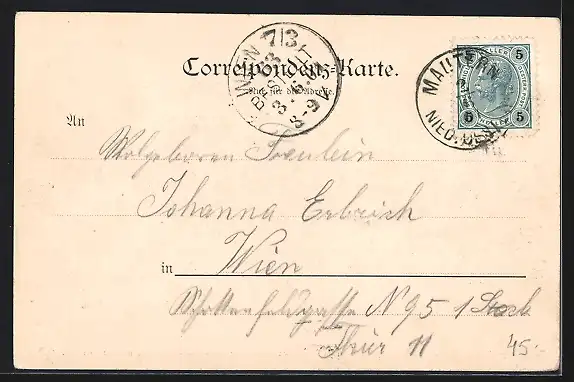 WIEN 7/3
BESTELLT
8-9V
Correspondenz-Karte.
Nur für die Adresse.
MAUTERN
NIED. OEST.
5 5
HELLER
5 5
An
Wolgeboren Fräulein
Johanna Erbrich
in Wien
Schottenfeldgasse N 95 1 Stock
Thür 11
45.-